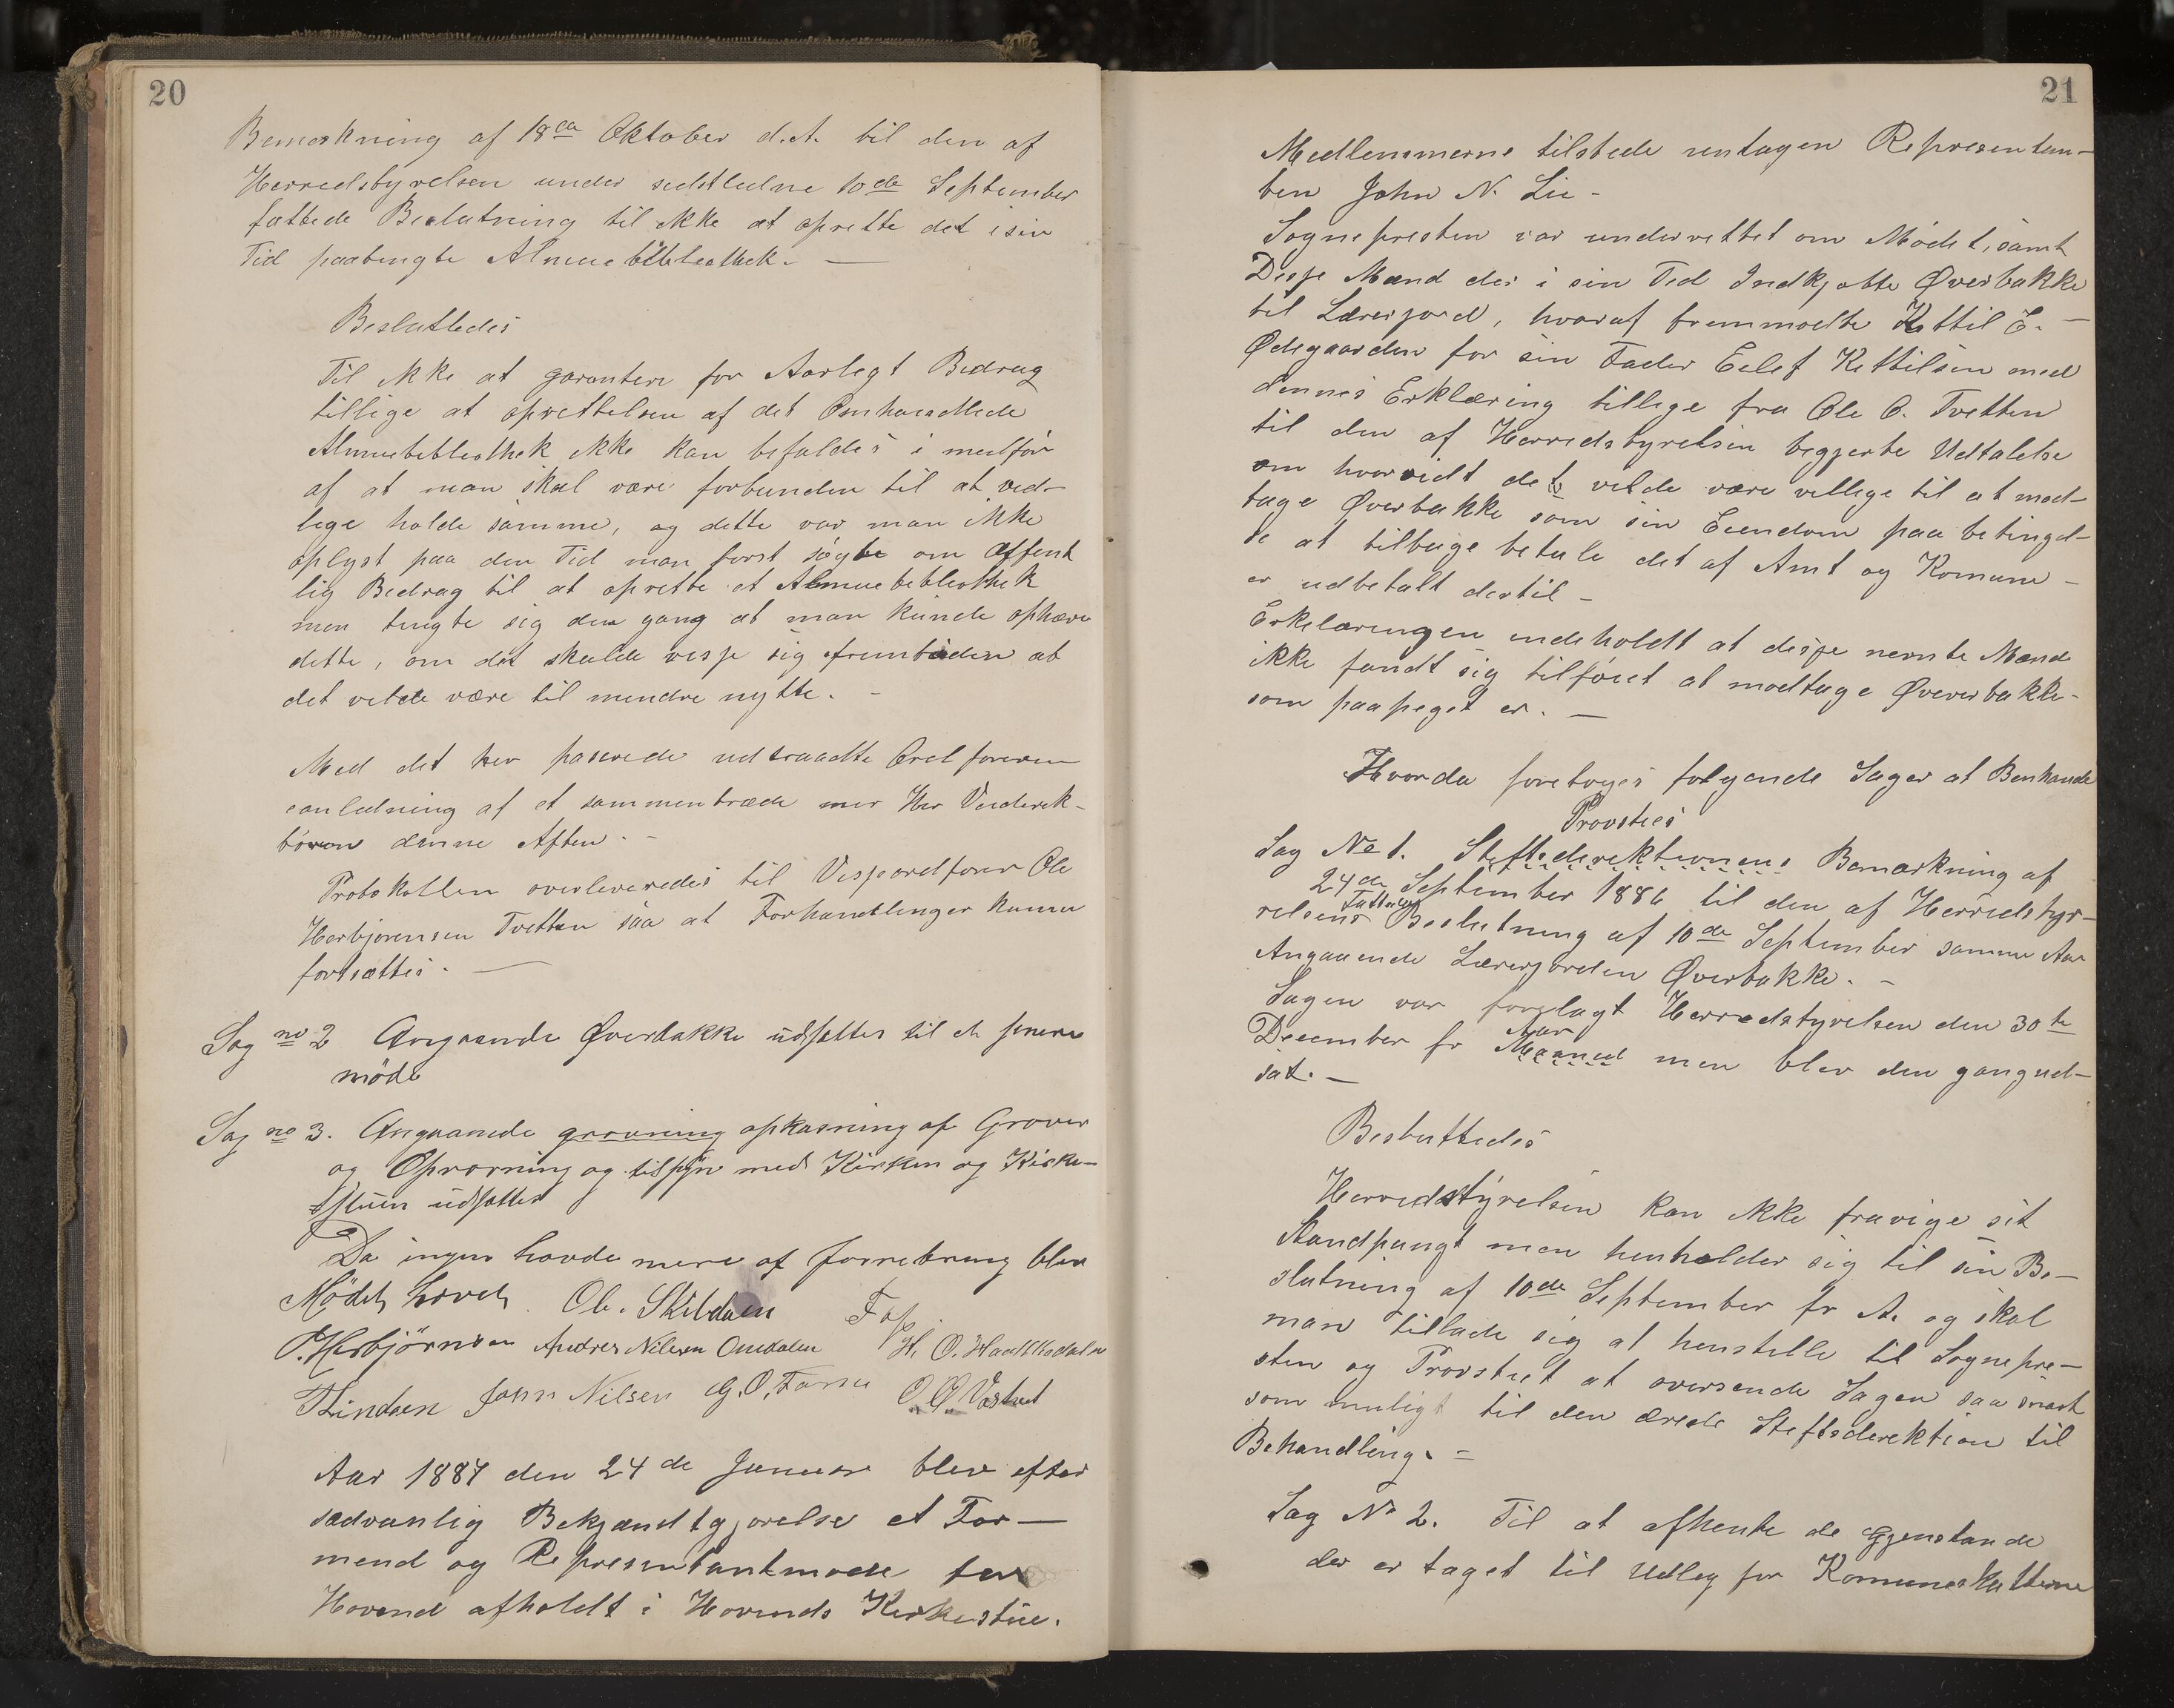 20
Bemærkning af 18da Oktober d.A. til den af
Herredsbyrelsen under sidstledne 10de September
fattede Beslutning til ikke at oprette det isin
Tid paatengte Almuebibliothek. —
Besluttedes
Til ikke at garantere for Aarlegt Bedrag
tillige at oprettelsen af det Omhandlede
Almuebebliothek ikke kan befaldes i medför
af at man skal være forbunden til at ved-
lege holde samme, og dette var man ikke
oplyst paa den Tid man først søgte om Offent
lig Bedrag til at oprette et Almuebebliothek
men tengte sig den gang at man kunde ophæve
dette, om det skulde visse sig fremtiden at
det vilde være til mendre nytte. -
Med det her passerede udtraadte Ordføreren
eanledning af et sammentræde mer Her Veiderek-
tören denne Aften. -
Protokollen overleveredes til Viseordfører Ole
Herbjørensen Tvetten saa at Forhandlinger kunne
fortsættes. —
Sag no 2 Angaaende Øverbakke udsattes til et senere
möde
Sag no 3. Angaaende gravning opkasning af Graver
og Opvarming og tilsyn med Kirken og Kirke-
stuen udsattes
Da ingen havde mere af forretning blev
Mödet hævet. Ol. Skildaen
O. Herbjörnsen Andres Nilsen Omdalen H. O.
John Nilsen G. O.
Aar 1887 den 24de Januar blev efter
sædvanlig Bekjændtgjørelse et For—
mend og Representantmøde for
Hovend afholdt i Hovends Kirkestue.
21
Medlemmerne tilstede untagen Representan-
ten John N. Lie -
Sognepresten var underrettet om Mødet, samt
Disse Mænd der i sin Tid Indkjøbte Øverbakke
til Lærerjord, hvoraf fremmødte Kettil E. —
Ødegaarden for sin Fader Eelef Kettilsen med
dennes Erklæring tillege fra Ole O. Tvetten
til den af Herredsbyrelsen begjerte Udtalelse
om hvorvidt de vilde være vellege til at mod-
tage Øverbakke som sin Eiendom paa betingel-
se at tilbage betale det af Amt og Komune —
er udbetalt dertil -
Erkelæringen indeholdt at disse nevnte Mænd
ikke fandt sig tilføiet at modtage Øververbakke-
som paapeget er. —
Hvorda foretoges følgende Sager at Benhande
Provsties
Sag No 1. Steftsderektionens Bemærkning af
24de September 1886 til den af Herredstyr-
Fattede
relsens Beslutning af 10de September samme Aar
Angaaende Lærerjorden Øverbakke. -
Sagen var forelagt Herredstyrelsen den 30te
Aar
December fr Maaned men blev den gangud-
sat. —
Besluttedes
Herredstyrelsen kan ikke fravige sit
Standpungt men henholder sig til sin Be-
slutning af 10de September fr A. og skal
man tillade sig at henstille til Sognepre-
sten og Provstiet at oversende Sagen saa snart
som muligt til den ærede Steftsderektion til
Behandling. =
Sag No 2. Til at afhente de Gjenstande
der er taget til Udleg for Komuneskatterne